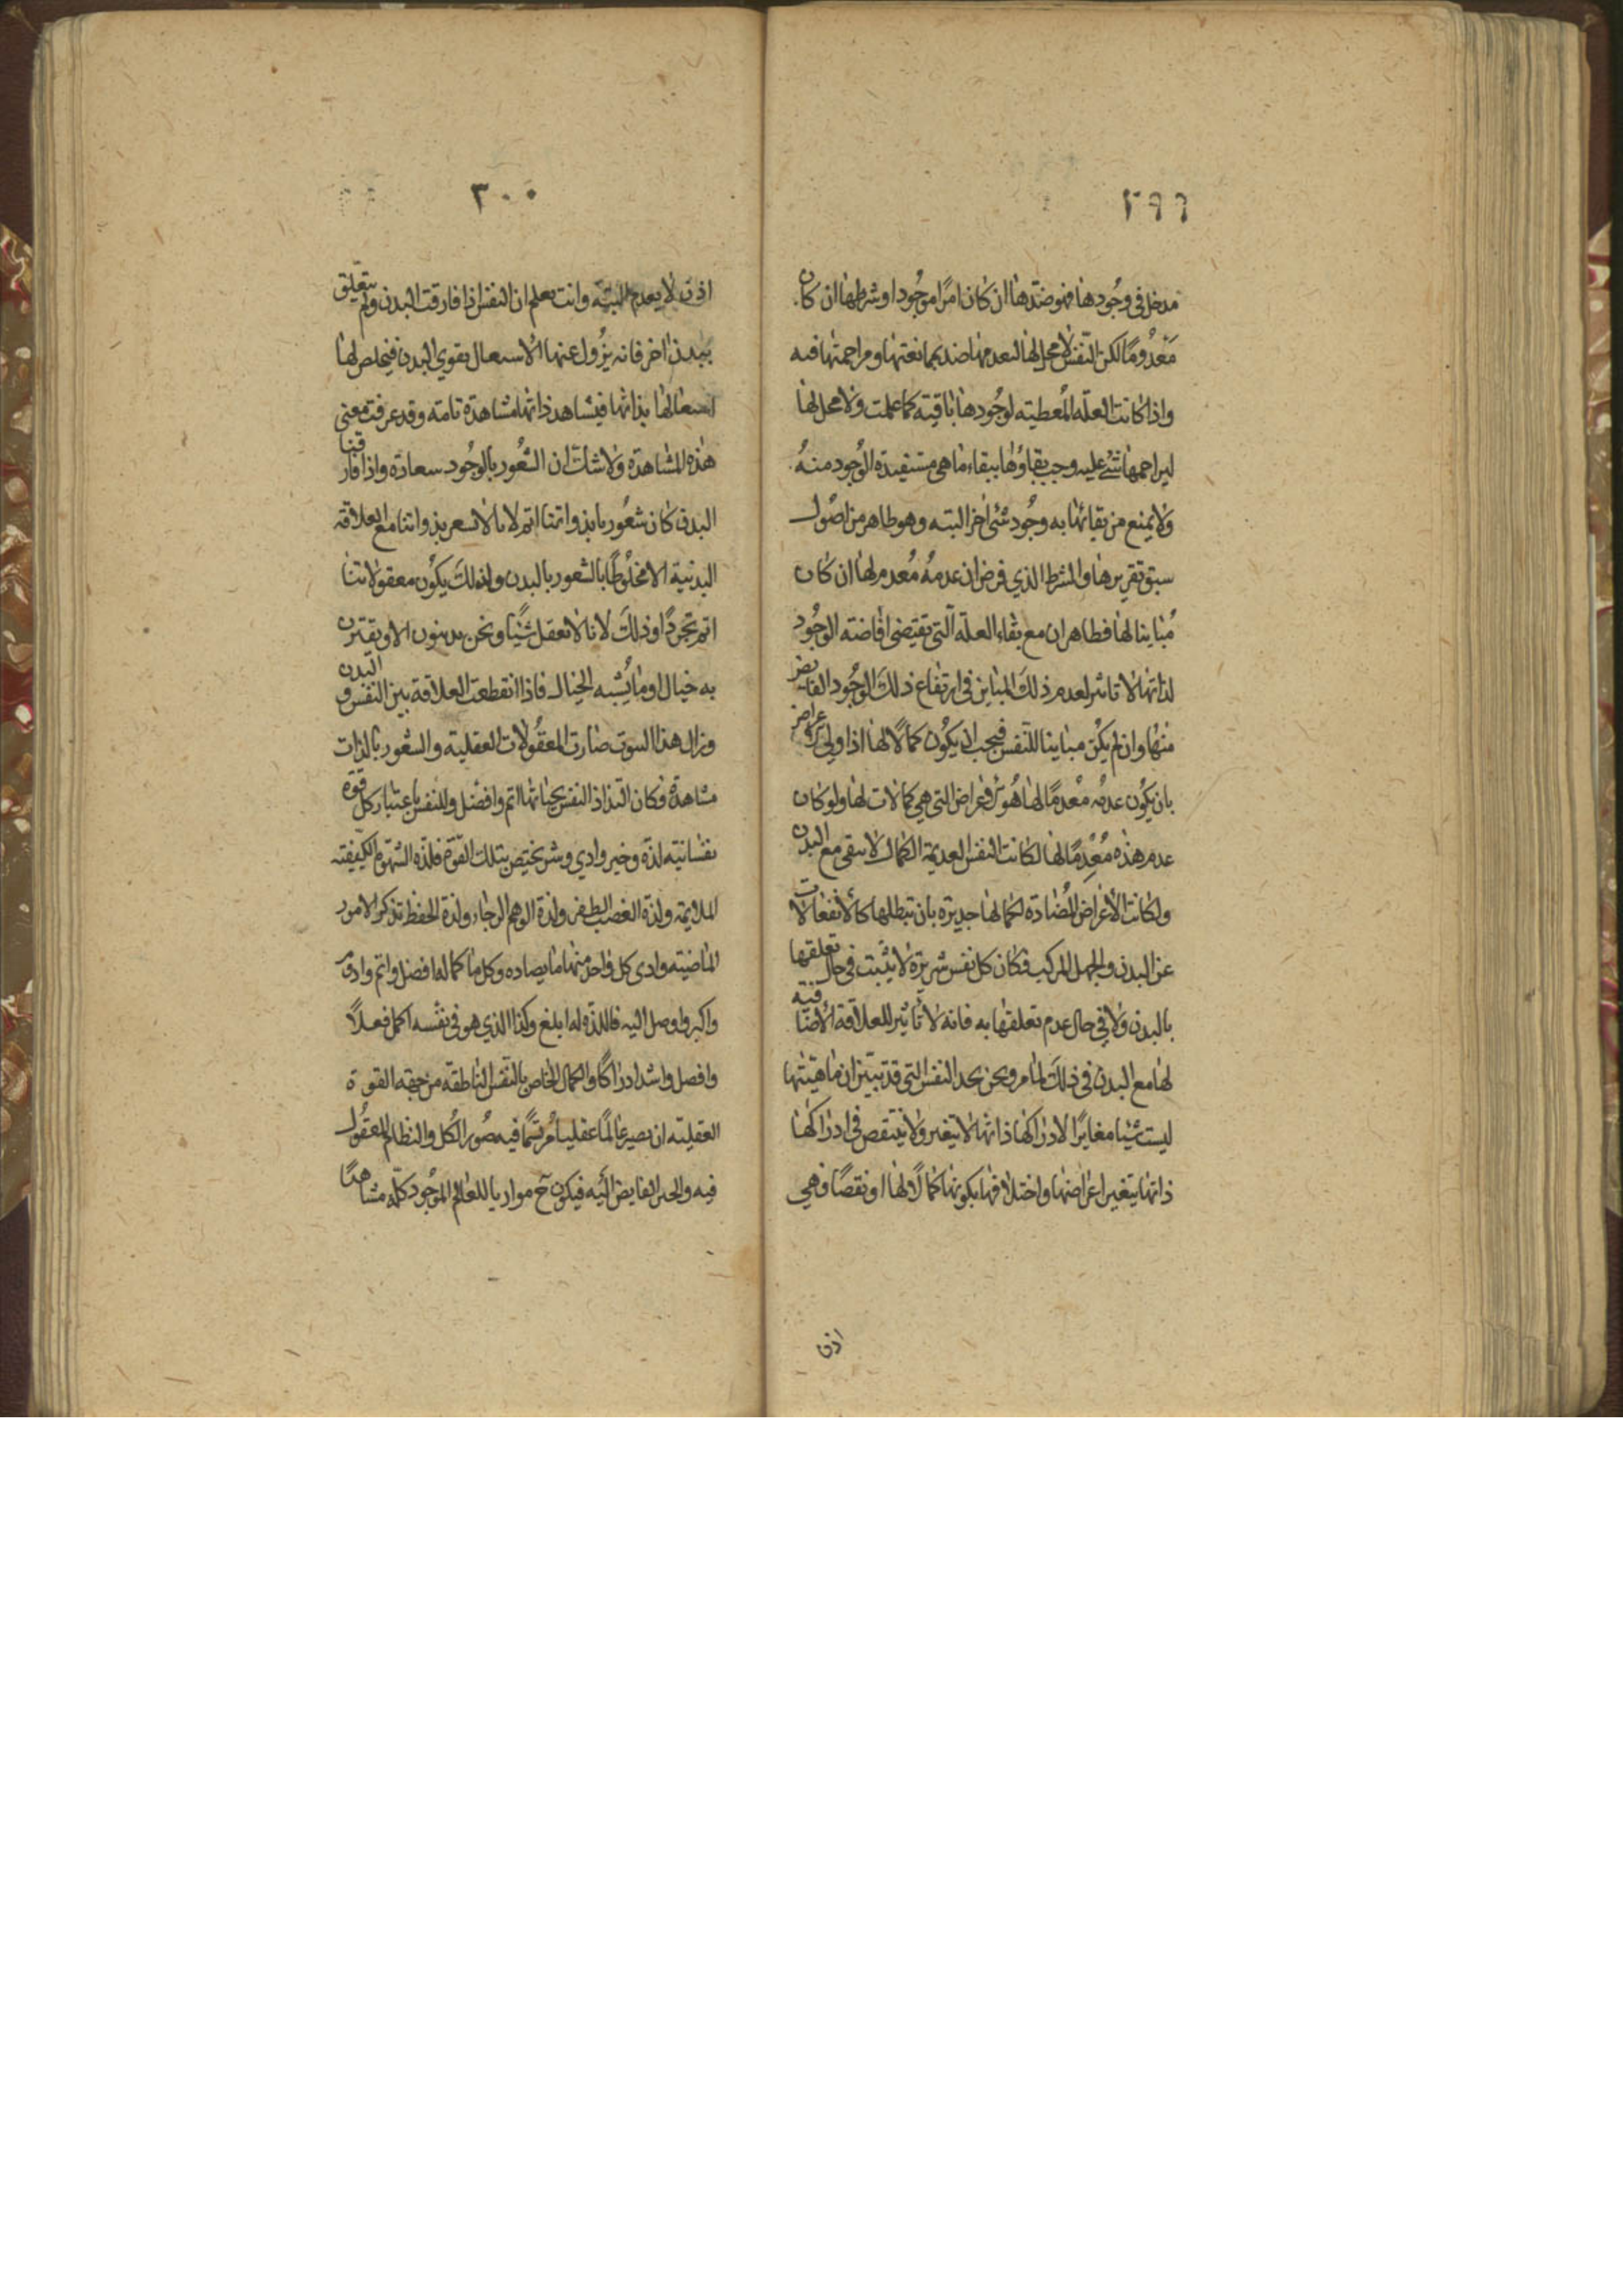 ٢٩٩
مدخل في وجودها فهو ضدها ان كان امرًا موجودا او شرطها ان كان
مَعْدُومًا لكن النفس لا محل لها ليعدمها ضد بممانعتها ومزاحمتها فيه
واذا كانت العلّه المُعطيته لوجودها باقيته كما علمت ولا محل لها
ليزاحمها شئ عليه وجب بقاؤها ببقاء ما هي مستفيدة الوجود منهُ
ولا يمنع من بقائها به وجُود شئ اخر البتـه وهو ظاهر من اصُول
سبق تقريرها والشرط الذي فرض ان عدمهُ مُعدم لها ان كان
مُباينا لها فظاهر ان مع بقاء العلة الّتى تقيتضى افاضته الوجُود
لذاتها لا تاثير لعدم ذلك المباين في ارتفاع ذلك الوجُود الفايض
منها وان لم يكن مباينا للنفس فيجب ان يكون كمالًا لها اذا ولي عراض
بان يكون عدمُه مُعْدمًا لها هُو الاعراض التي هي كمالات لها ولو كان
عدم هذه مُعْدِمًا لها لكانت النفس العديمة الكمال لا تبقى مع البدن
ولكانت الأعراض المُضادة لكمالها جديرة بان تبطلها كالأنفعالات
عن البدن والجهل المركب فكان كل نفس شريرة لا يثبت في حال تعلقها
بالبدن ولا في حال عدم تعلقها به فانه لا تأثير للعلاقة الاضافية
لها مع البدن في ذلك لما مر ونحن نجد النفس التي قد تبيّن ان ماهيّتها
ليست شيئا مغايرًا لادراكها ذاتها لا يتغير ولا ينتقص في ادراكها
ذاتها بتغير اعراضها واختلافها بكونها كمالًا لها او نقصًا فهي
اذن
٣٠٠
اذن لا يعدم البتّه وانت تعلم ان النفس اذا فارقت البدن ولم يتعلّق
ببدن اخر فانه يزُول عنها الاشتغال بقوي البدن فيخلص لها
اشتغالها بذاتها فيشاهد ذاتها مشاهدة تامته وقد عرفت معنى
هذه المشاهدة ولا شكّ ان الشُعُور بالوجُود سعادة واذا فارقنا
البدن كان شعُورنا بذواتنا اتم لانا لا نشعر بذواتنا مع العلاقة
البدنية الا مخلُوطًا بالشعور بالبدن وكذلك يكون معقولاتنا
اتم تجردًا وذلك لانا لا نعقل شيئًا ونحن بدنيون الا ويقترن
به خيال او ما يُشبه الخيال فاذا انقطعت العلاقة بين النفس والبدن
وزال هذا الشوب صارت المعقُولات العقليته والشعور بالذات
مشاهدة فكان التذاذ النفس بحياتها اتم وافضل وللنفس باعتبار كل قوة
نفسانيته لذة وخير واذي وشر يختص بتلك القوّة فلذّه الشهوة الكيفيته
الملايمة ولذة الغضب الظفر ولذة الوهم الرجاء ولذة الحفظ تذكر الامور
الماضيته واذى كل واحد منها ما يضاده وكل ما كماله افضل واتم وادوم
واكبر واوصل اليه فاللذة له ابلغ وكذا الذي هو في نفسه اكمل فعـلًا
وافضل واشد ادراكًا والكمال الخاص بالنفس الناطقه من جهته القوة
العقليته ان تصير عالمًا عقليا مُرتسمًا فيه صُور الكُل والنظام المعقُول
فيه والخير الفايض اليه فيكون ح موازيا للعالم الموجُود كلّه مشاهدًا